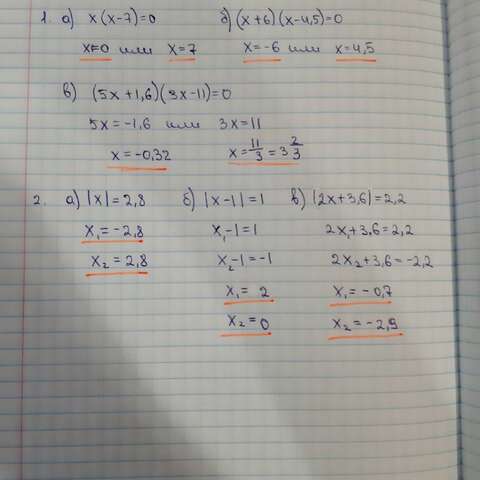 1. а) x(x-7)=0 б) (x+6)(x-4,5)=0
x=0 или x=7 x=-6 или x=4,5
в) (5x+1,6)(3x-11)=0
5x=-1,6 или 3x=11
x=-0,32 x=11/3=3 2/3
2. а) |x|=2,8 б) |x-1|=1 в) |2x+3,6|=2,2
x₁=-2,8 x₁-1=1 2x₁+3,6=2,2
x₂=2,8 x₂-1=-1 2x₂+3,6=-2,2
x₁=2 x₁=-0,7
x₂=0 x₂=-2,9